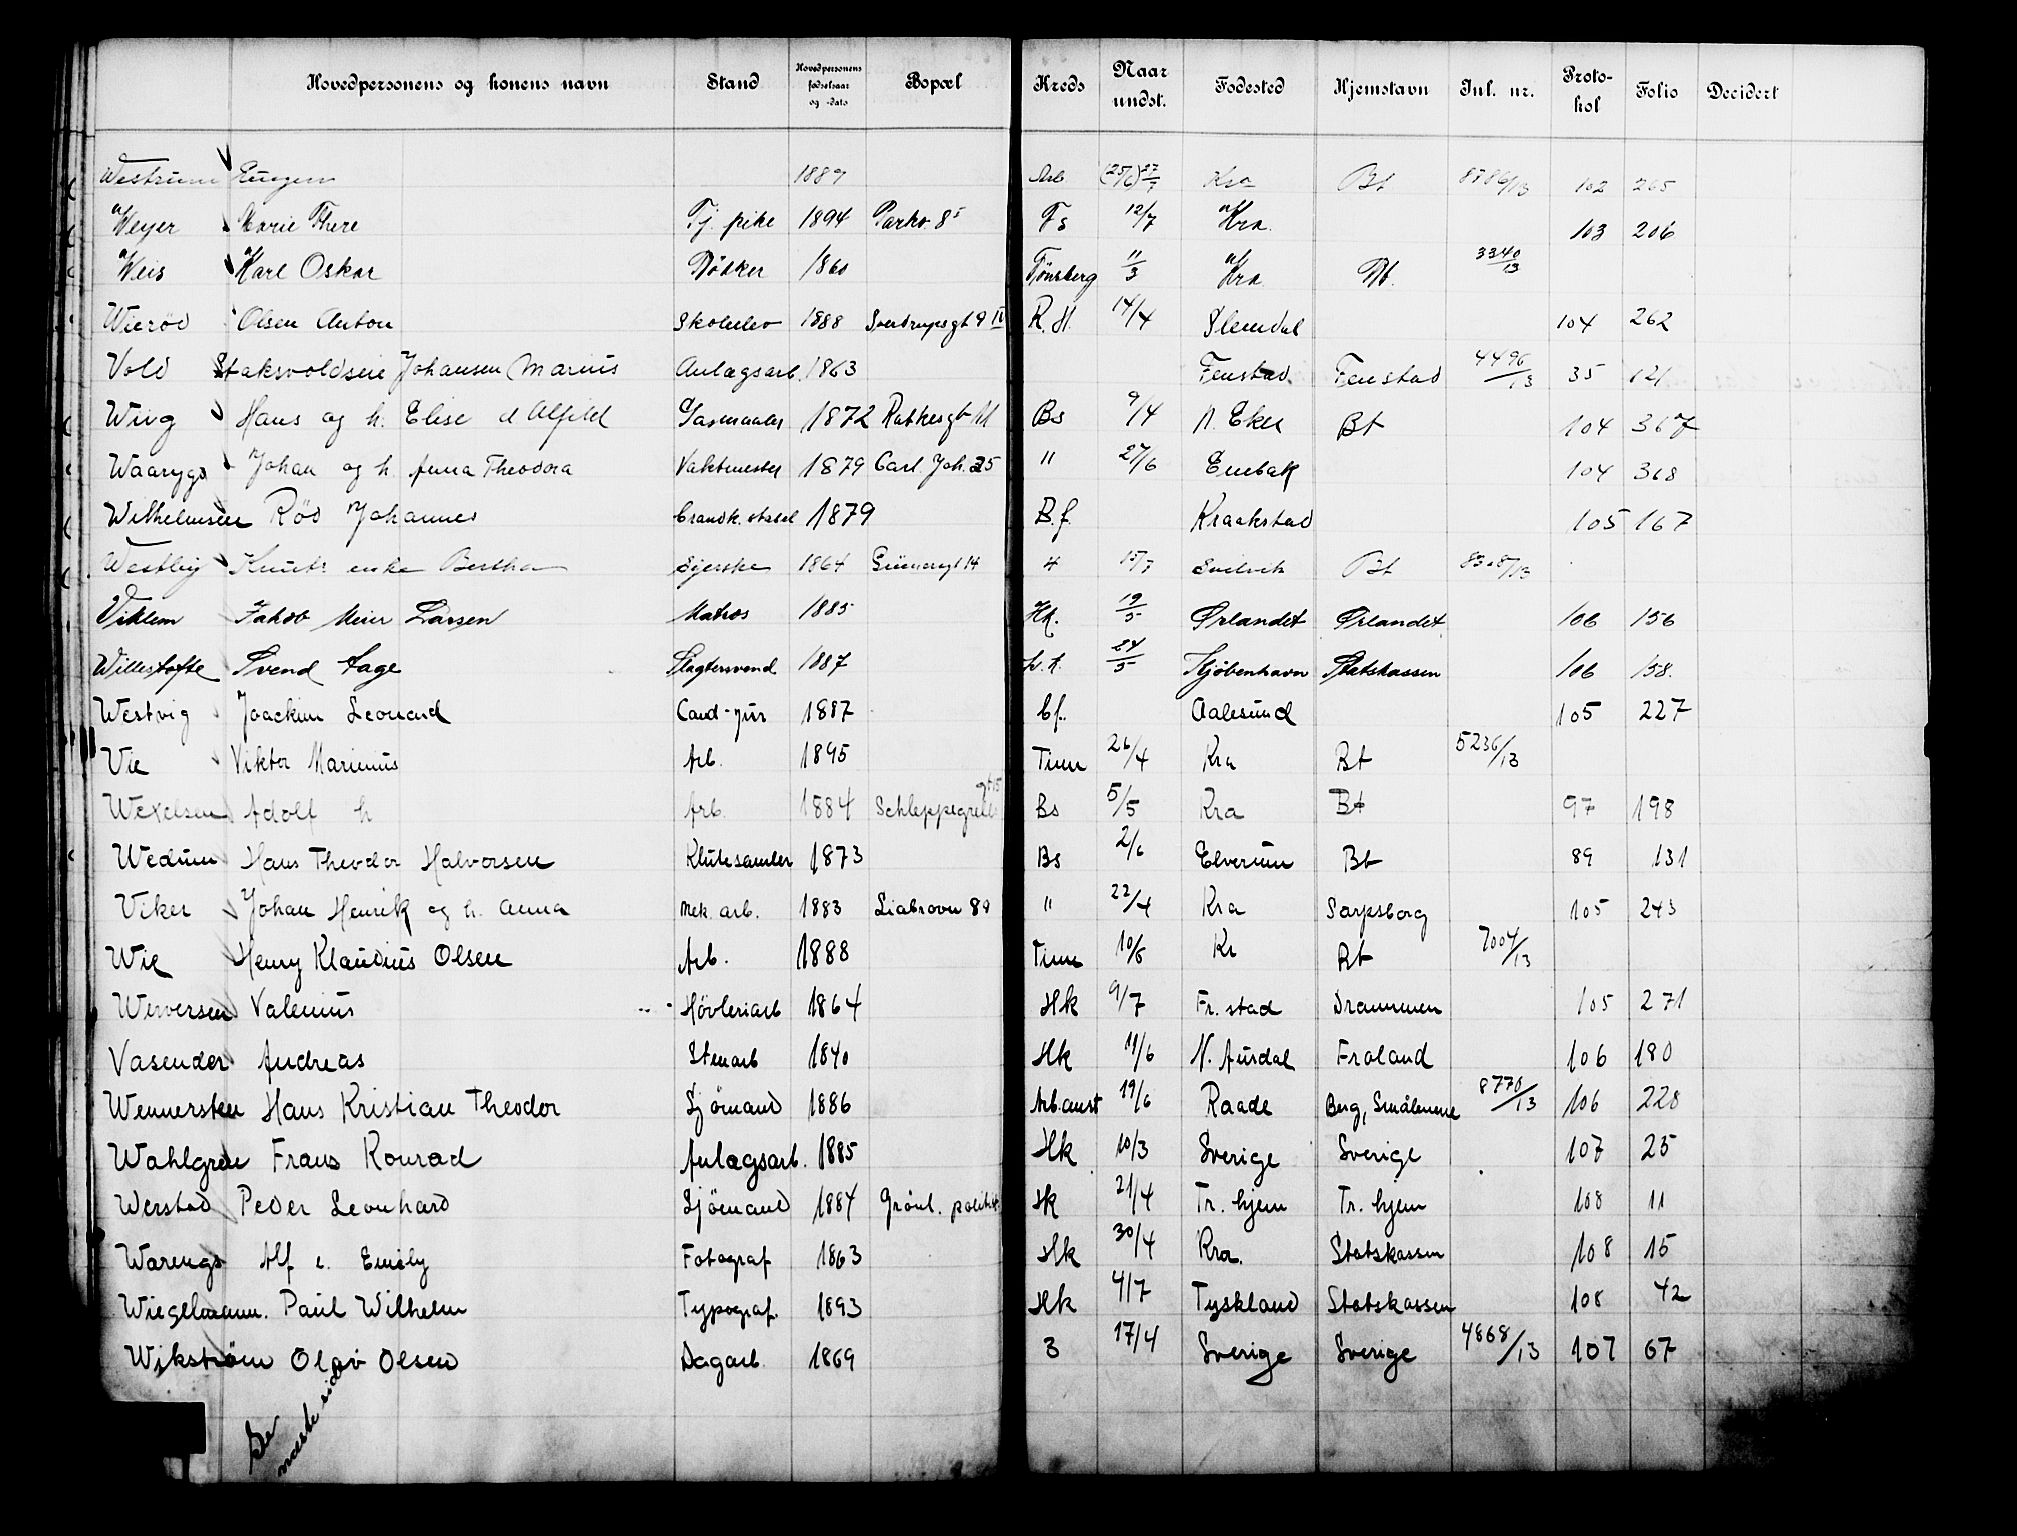 Hovedpersonens og konens navn Stand Hovedpersonens fødselsaar og -dato Bopæl Kreds Naar undst. Fødested Hjemstavn Jnl. nr. Proto-kol Folio Decidert
Westrum Eugen 1889 Arb. (25/6) 27/7 Kra Bt 8786/13 102 265
Weyer Marie There Tj. pike 1894 Parkv. 8 Fs 12/7 Kra. 103 206
Weis Karl Oskar Bødker 1860 Tønsberg 11/3 Kra Bt. 3340/13
Wierød Olsen Anton Skoleelev 1888 Sverdrupsgt 9 IV R.H. 14/4 Slemdal 104 262
Vold Staksvoldseie Johansen Marius Anlægsarb. 1863 Fenstad Fenstad 4496/13 35 121
Wiig Hans og h. Elise d Alfild 1872 Ratkesgt 11 Bs 9/4 N. Eker Bt 104 367
Waarygs Johan og h. Anna Theodora Vaktmester 1879 Carl Joh. 25 " 27/6 Enebak 104 368
Wilhelmsen Rød Johannes 1879 B.f. Kraakstad 105 167
Westby Knuts enke Bertha Syerske 1864 14 4 15/7 Svelvik Bt 105
Viklem Jakob Meier Larsen Matros 1885 Hk. 19/5 Ørlandet Ørlandet 106 156
Willestofte Svend Aage Slagtersvend 1887 24/5 Kjøbenhavn Statskassen 106 158.
Westvig Joackim Leonard Cand-jur 1887 Aalesund 105 227
Vie Viktor Marinius Arb. 1895 Tinn 26/4 Kra Bt 5236/13
Wexelsen Adolf h Arb. 1884 Schleppegrells gt 15 Bs 5/5 Kra Bt 97 198
Wedum Hans Theodor Halvorsen Klutesamler 1873 Bs 2/6 Elverum Bt 89 131
Viker Johan Henrik og h. Anna Mek. arb. 1883 Liabrovn 89 " 22/4 Kra Sarpsborg 105 243
Wie Henry Klaudius Olsen Arb. 1888 Tinn 10/6 Kr Bt 7004/13
Werversen Valenius Høvleriarb 1864 Hk 9/7 Fr. stad Drammen 105 271
Vasender Andreas Stenarb 1840 Hk 11/6 N. Aurdal Froland 106 180
Wennersten Hans Kristian Theodor Sjømand 1886 Arb.anst 19/6 Raade Berg, Smålenene 8770/13 106 228
Wahlgren Frans Konrad Anlægsarb. 1885 Hk 10/3 Sverige Sverige 107 25
Werstad Peder Leonhard Sjømand 1884 Grønl. politist. Hk 21/4 Tr. hjem Tr. hjem 108 11
Warengs Alf e. Emily Fotograf 1863 Hk 30/4 Kra. Statskassen 108 15
Wiegelmann. Paul Wilhelm Typograf. 1893 Hk 4/7 Tyskland Statskassen 108 42
Wikstrøm Olav Olsen Dagarb. 1869 3 17/4 Sverige Sverige 4868/13 107 67
Se næste side